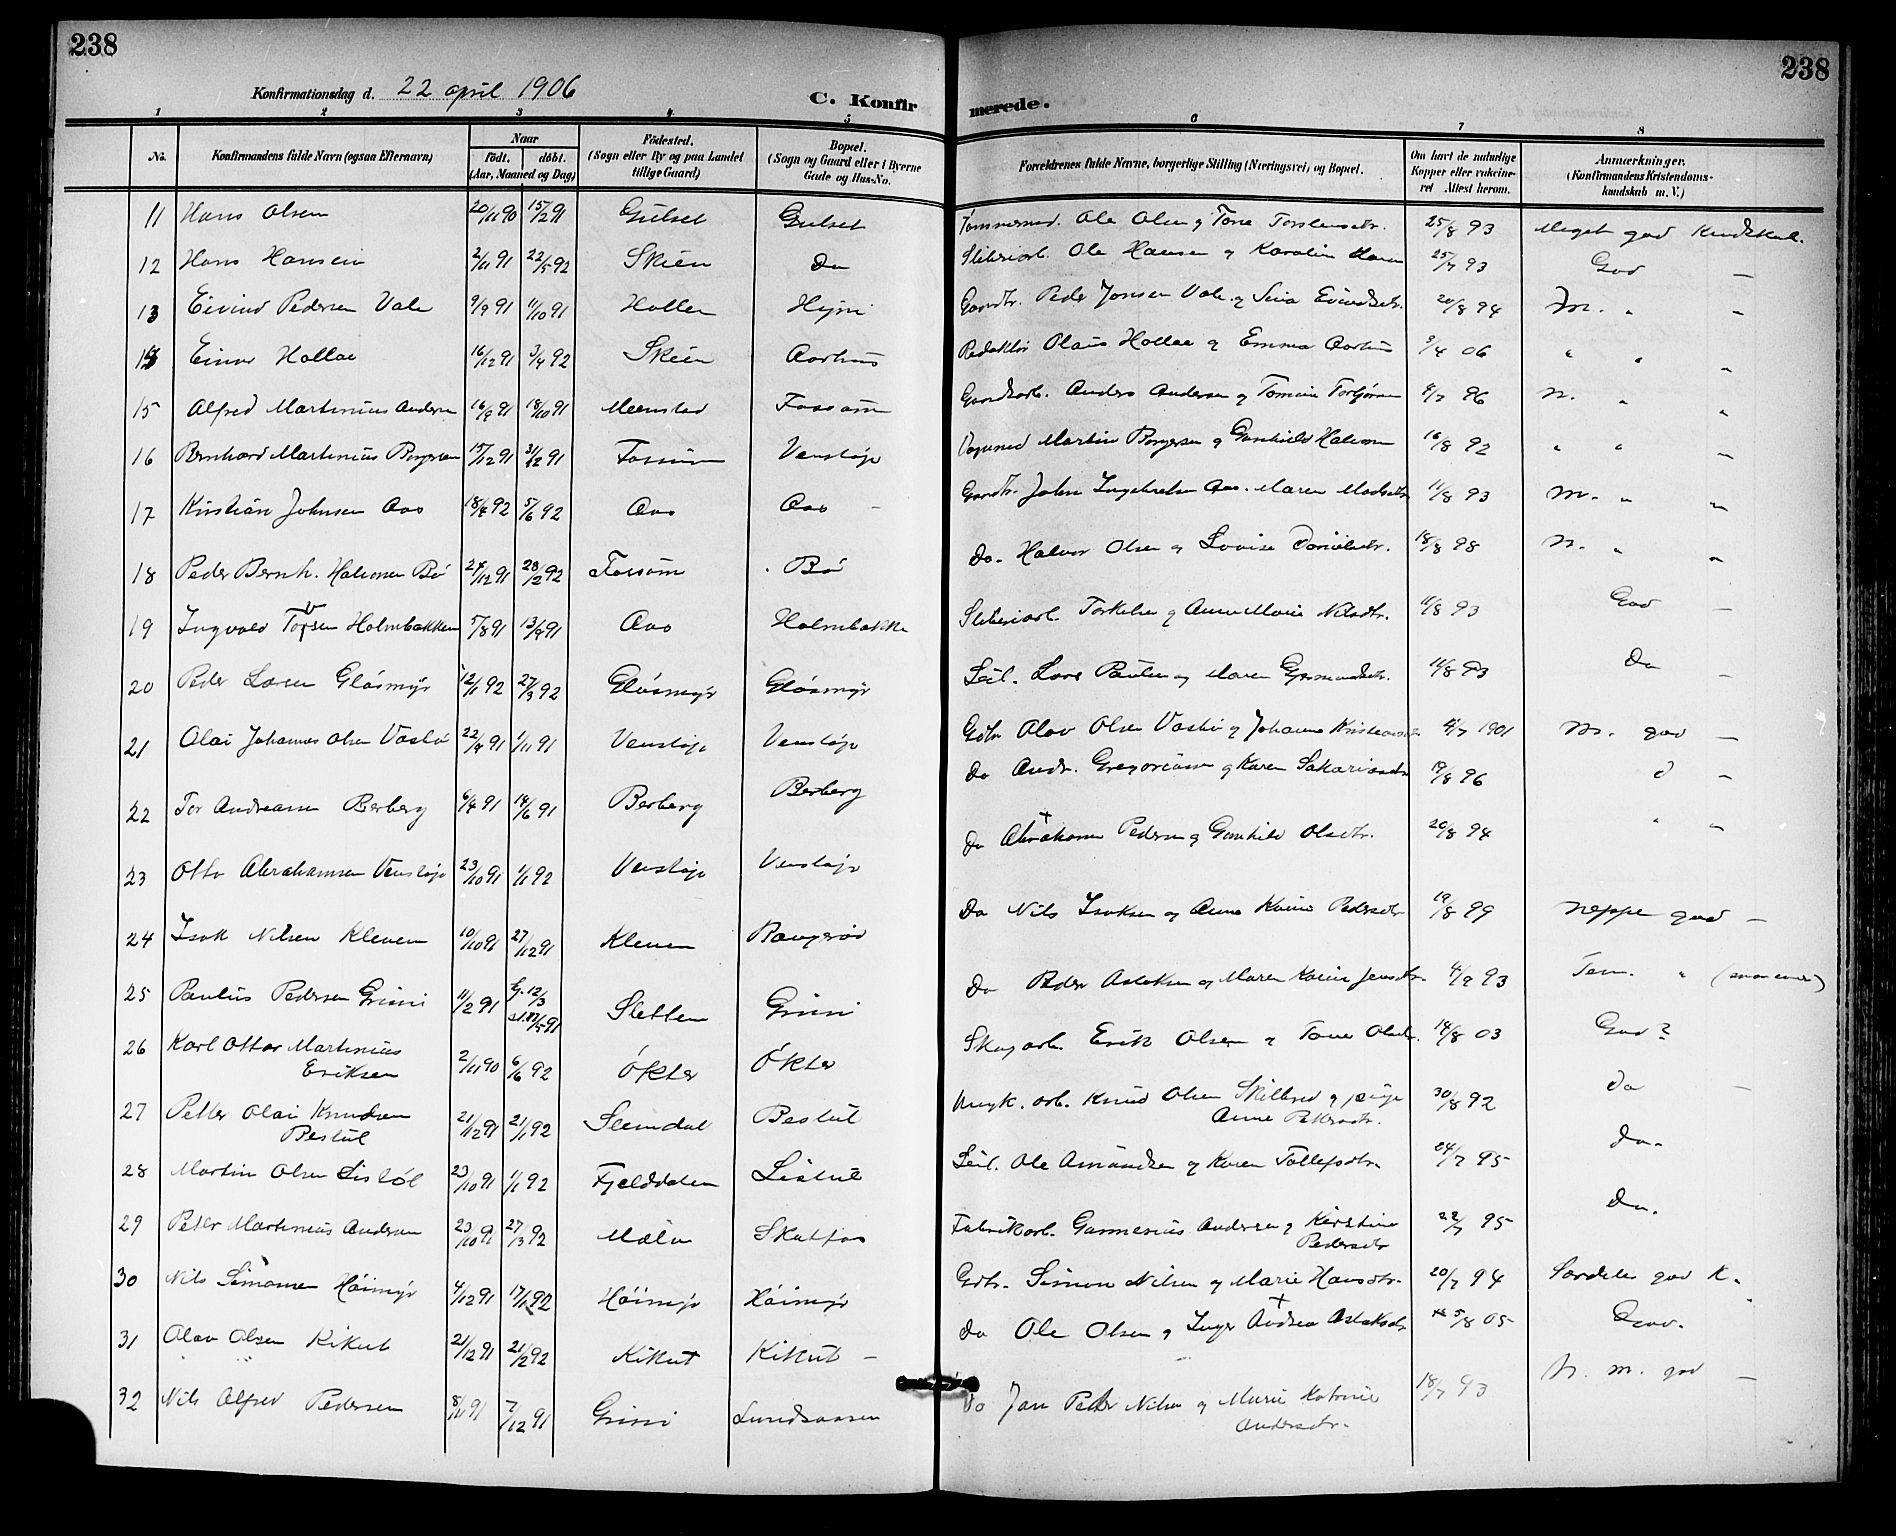 238
238
Konfirmationsdag d. 22 april 1906
C. Konfirmerede.
1 2 3 4 5 6 7 8
No.
Konfirmandens fulde Navn (ogsaa Efternavn)
Naar
født. døbt.
(Aar, Maaned og Dag)
Fødested.
(Sogn eller By og paa Landet
tillige Gaard)
Bopæl.
(Sogn og Gaard eller i Byerne
Gade og Hus-No.
Forældrenes fulde Navne, borgerlige Stilling (Næringsvei) og Bopæl.
Om havt de naturlige
Kopper eller vakcine-
ret Attest herom.
Anmærkninger.
(Konfirmandens Kristendoms-
kundskab m. V.)
11 Hans Olsen 20/11 90 15/2 91 Gulset Gulset Tømmermd. Ole Olsen og Tone Torstensdtr. 25/8 93 Meget god Kundskab.
12 Hans Hansen 2/11 91 22/5 92 Skien Do Sliberiarb. Ole Hansen og Karoline 25/7 93 God —
13 Eivind Pedersen Vale 9/9 91 11/10 91 Hollen Hejni Gaardbr. Peder Jonsen Vale og Eivindsdtr. 20/8 94 M. " —
Einar Hollae 16/12 91 3/4 92 Skien Aarhus Redaktør Olaus Hollae og Emma Aarhus 3/4 06 " " —
15 Alfred Martinius Andersen 16/9 91 18/10 91 Menstad Fossum Gaardsarb. Anders Andersen og 4/7 96 N. " —
16 Bernhard Martinius Borgersen 15/12 91 Fossum Venstøp Martin Borgersen og Gunhild 16/8 92 " " —
17 Kristian Johnsen Aas 18/4 92 5/6 92 Aas Aas — Gaardbr. John Ingebretsen Aas. Maren Madsdtr 11/8 93 M. " —
18 Peder Bernh. Halvorsen Bø 24/12 91 28/2 92 Fossum Bø Do. Halvor Olsen og Lovise Danielsdtr. 18/8 98 N. " —
19 Ingvald Holmbakken 5/8 91 13/9 91 Aas Holmbakken Sliberiarb. Torkelsen og Anne Marie Nilsdtr. 11/8 93 God —
20 Peder Larsen Gløsmyr 12/1 92 27/3 92 Gløsmyr Gløsmyr Leil. Lars Paulsen og Maren 11/8 93 Do —
21 Olai Johannes Olsen 22/4 91 1/11 91 Venstøp Venstøp Gbr Olav Olsen og Johanne Kristiansdtr 4/7 1901 M. god —
22 Tor Andreassen Berberg 6/4 91 14/6 91 Berberg Berberg Do Andr. Gregoriusen og Karen Sakariasdtr 19/8 96 d —
23 Otto Abrahamsen Venstøp 23/10 91 1/1 92 Venstøp Venstøp Do Abraham Pedersen og Gunhild Olsdtr. 20/8 94 " —
24 Isak Nilsen Kleven 10/10 91 27/12 91 Kleven Do Nils Isaksen og Anne Karine Pedersdtr 19/8 99 Neppe god —
25 Paulus Pedersen Grini 11/2 91 12/3 91 Sletten Grini Do Peder Aslaksen og Maren Karine Jensdtr 4/9 93 Tem. "
26 Karl Ottar Martinius
Eriksen 2/11 90 6/6 92 Økter Økter Skogarb. Erik Olsen og Tone Olsdtr. 14/8 03 God?
27 Petter Olai Knudsen
Bestul 21/12 91 21/1 92 Slemdal Bestul arb. Knud Olsen og pige
Anne Pettersdtr. 30/8 92 Do —
28 Martin Olsen Listøl 23/10 91 1/1 92 Fjelddalen Listul Leil. Ole Amundsen og Karen Tollefsdtr. 24/7 95 Do.
29 Peter Martinius Andersen 23/10 91 27/3 92 Mæla Skotfos Fabrikarb. Andersen og Kirstine
Pedersdtr 22/7 95 Do.
30 Nils Simonsen Høimyr 4/12 91 17/1 92 Høimyr Høimyr Gbr. Simon Nilsen og Marie Hansdtr. 20/7 94 Særdeles god K.
31 Olav Olsen Kikut 21/12 91 21/2 92 Kikut Kikut — Do Ole Olsen og Inger Andrea Aslaksdtr 5/8 05 God.
32 Nils Alfred Pedersen 8/11 91 7/12 91 Grini Lundsaasen Do Jan Peder Nilsen og Marie Katrine
Andersdtr. 18/7 93 N. m. god —